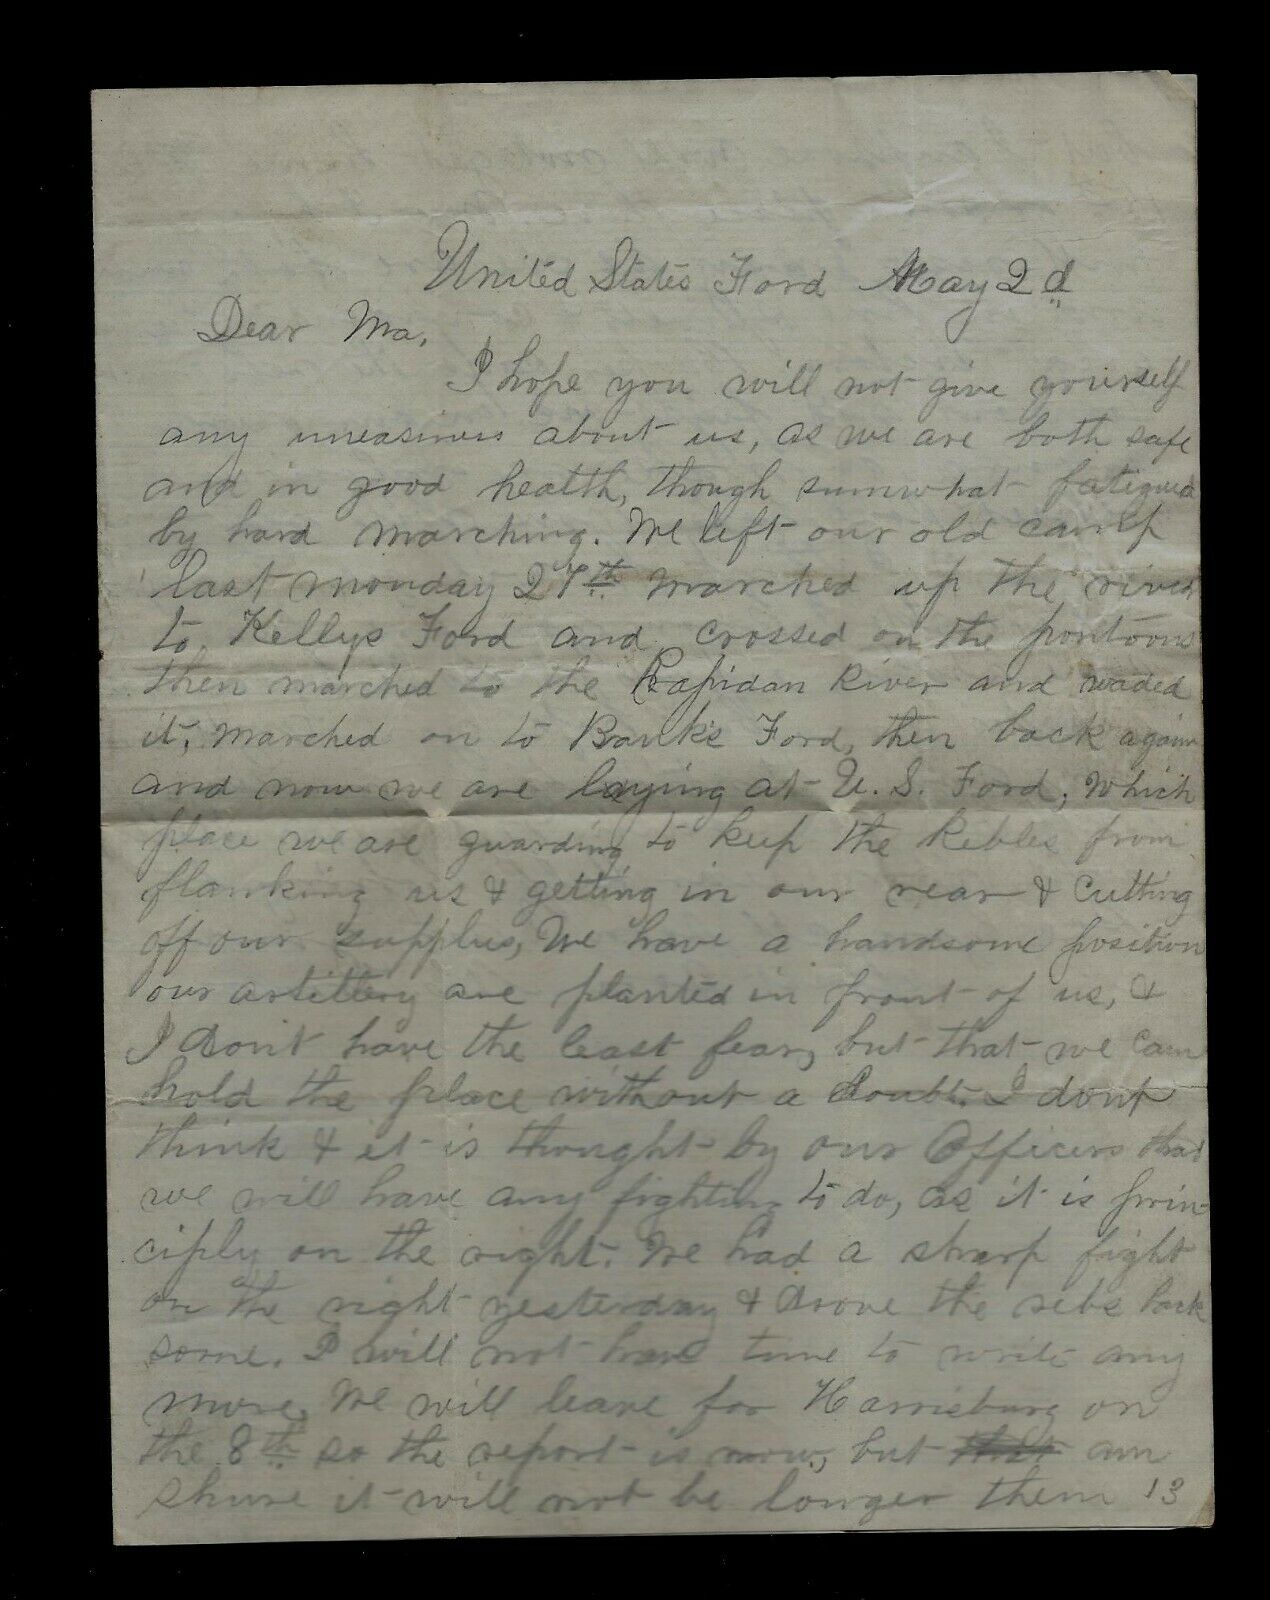 United States Ford May 2d
Dear Ma,
I hope you will not give yourself
any uneasiness about us, as we are both safe
and in good health, though sumwhat fatigued
by hard marching. We left our old camp
last monday 27th marched up the river
to Kellys Ford and crossed on the pontoons
then marched to the Rapidan River and waded
it, marched on to Bank's Ford, then back again
and now we are laying at U. S. Ford, which
place we are guarding to keep the Rebles from
flanking us & getting in our rear & cutting
off our supplies, We have a handsome position
our artillery are planted in front of us, &
I Don't have the least fear, but that we can
hold the place without a doubt. I dont
think & it is thought by our Officers that
we will have any fighting to do, as it is prin-
ciply on the right. We had a sharp fight
on the right yesterday & drove the rebs back
some. I will not have time to write any
more, We will leave for Harrisburg on
the 8th so the report is now, but that am
shure it will not be longer them 13